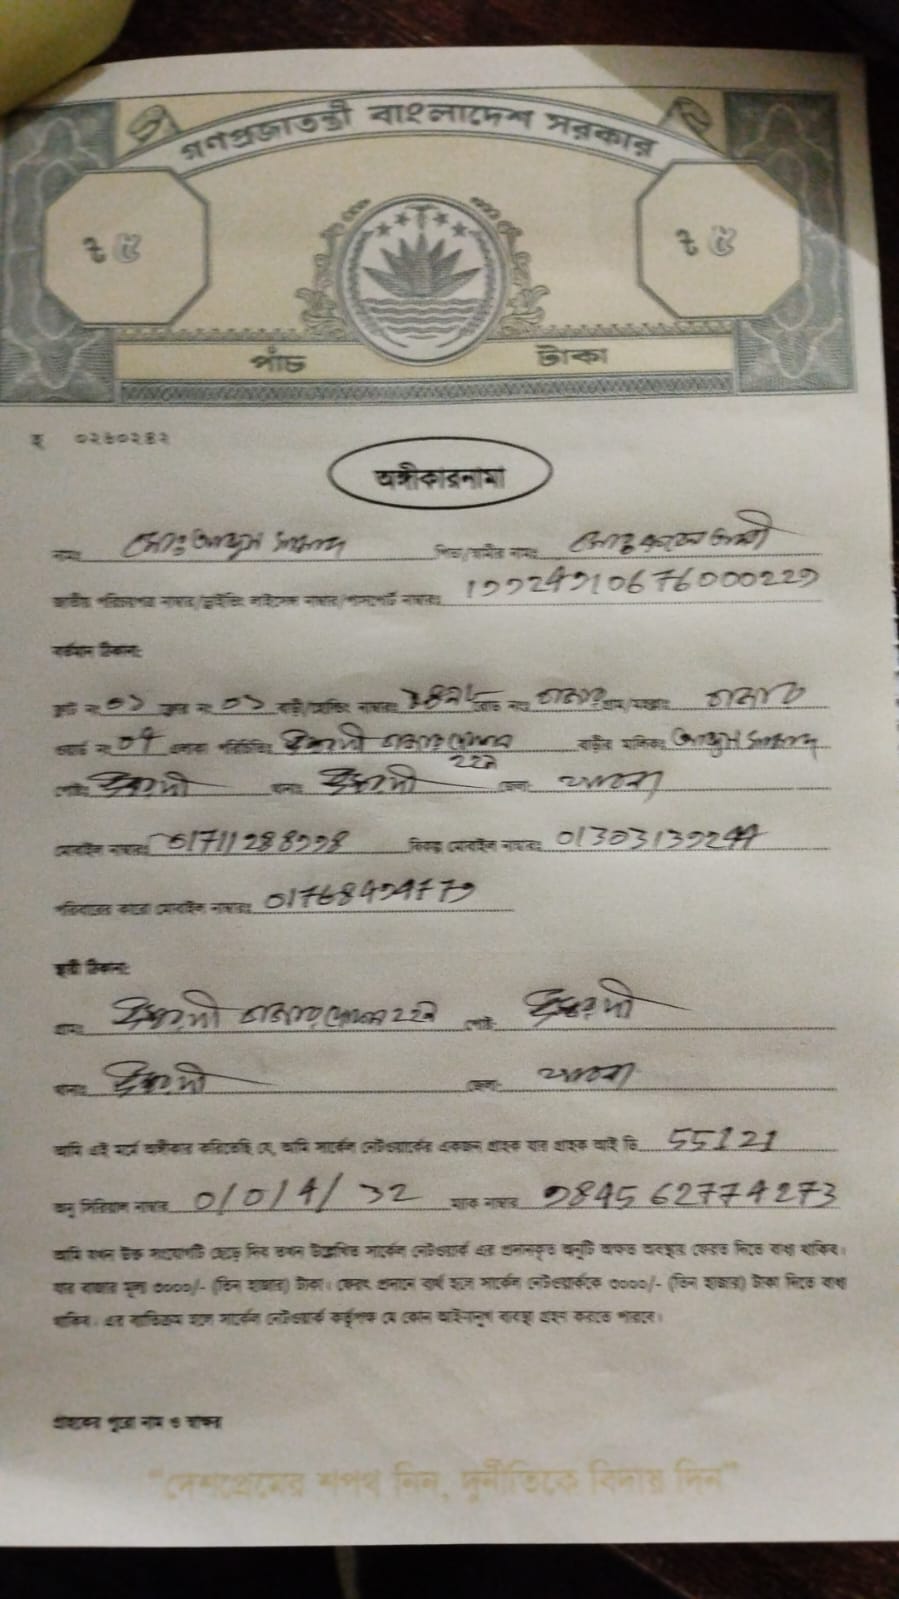 গণপ্রজাতন্ত্রী বাংলাদেশ সরকার
ট ৫ ট ৫
পাঁচ টাকা
হ ০২৬০২৪২
অঙ্গীকারনামা
নামঃ মোঃ আব্দুস সামাদ পিতা/স্বামীর নামঃ মোঃ আলী
জাতীয় পরিচয়পত্র নাম্বার/ড্রাইভিং লাইসেন্স নাম্বার/পাসপোর্ট নাম্বারঃ
বর্তমান ঠিকানা:
ফ্লাট নং ০১ ফ্লোর নং ০১ বাড়ী/হোল্ডিং নাম্বারঃ রোড নংঃ বাজার গ্রাম/মহল্লাঃ বাজার
ওয়ার্ড নং 04 এলাকা পরিচিতিঃ ঈশ্বরদী বাজার বাড়ীর মালিকঃ আব্দুস সামাদ
পোষ্টঃ ঈশ্বরদী থানাঃ ঈশ্বরদী জেলা: পাবনা
মোবাইল নাম্বারঃ বিকল্প মোবাইল নাম্বারঃ
পরিবারের কারো মোবাইল নাম্বারঃ
স্থায়ী ঠিকানা:
গ্রামঃ ঈশ্বরদী বাজার পোষ্ট: ঈশ্বরদী
থানাঃ ঈশ্বরদী জেলা: পাবনা
আমি এই মর্মে অঙ্গীকার করিতেছি যে, আমি সার্কেল নেটওয়ার্কের একজন গ্রাহক যার গ্রাহক আই ডি 55121
অনু সিরিয়াল নাম্বার 0/0/4/32 ম্যাক নাম্বার 984562774273
আমি যখন উক্ত সংযোগটি ছেড়ে দিব তখন উল্লেখিত সার্কেল নেটওয়ার্ক এর প্রদানকৃত অনুটি অক্ষত অবস্থায় ফেরত দিতে বাধ্য থাকিব।
যার বাজার মূল্য ৩০০০/- (তিন হাজার) টাকা। ফেরৎ প্রদানে ব্যর্থ হলে সার্কেল নেটওয়ার্ককে ৩০০০/- (তিন হাজার) টাকা দিতে বাধ্য
থাকিব। এর ব্যতিক্রম হলে সার্কেল নেটওয়ার্ক কর্তৃপক্ষ যে কোন আইনানুগ ব্যবস্থা গ্রহন করতে পারবে।
গ্রাহকের পুরো নাম ও স্বাক্ষর
“দেশপ্রেমের শপথ নিন, দুর্নীতিকে বিদায় দিন”